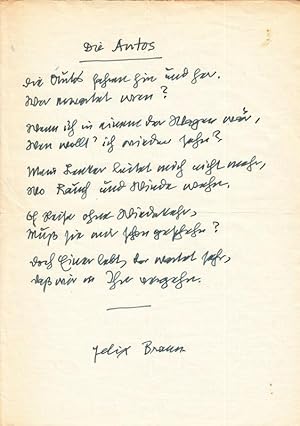 Die Autos
Die Autos fahren hin und her.
Wer erwartet wen?
Wenn ich in einem der Wagen wär,
Wen wollt' ich wieder sehn?
Mein Lenker leitet mich nicht mehr,
Wo Rauch und Winde wehn.
O Reise ohne Wiederkehr,
Muß sie mir schon geschehn?
Doch Einer lebt, der wartet sehr,
daß wir in Ihm vergehn.
Felix Braun